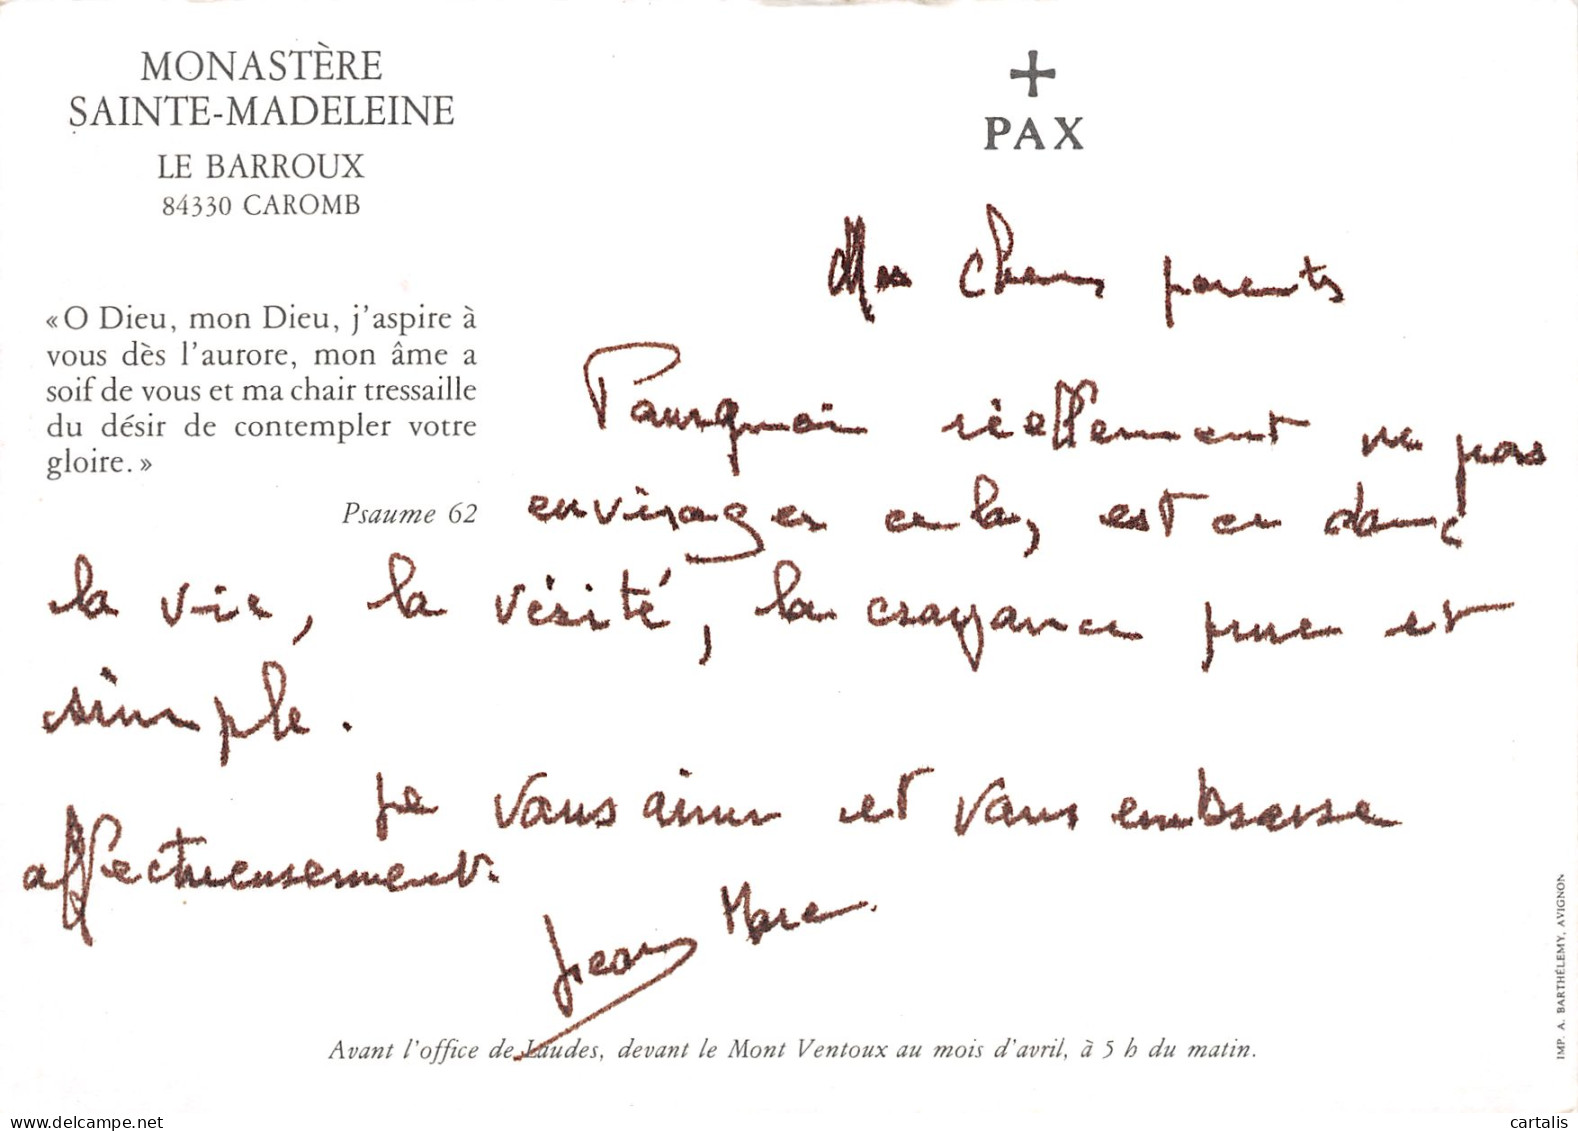 MONASTÈRE
SAINTE-MADELEINE
LE BARROUX
84330 CAROMB
PAX
«O Dieu, mon Dieu, j'aspire à
vous dès l'aurore, mon âme a
soif de vous et ma chair tressaille
du désir de contempler votre
gloire.»
Psaume 62
Mes chers parents
Pourquoi réellement ne pas
envisager cela, est ce donc
la vie, la vérité, la croyance pure et
simple.
je vous aime et vous embrasse
affectueusement.
Jean Marc.
Avant l'office de Laudes, devant le Mont Ventoux au mois d'avril, à 5 h du matin.
IMP. A. BARTHÉLEMY, AVIGNON
delcampe.net
cartalis